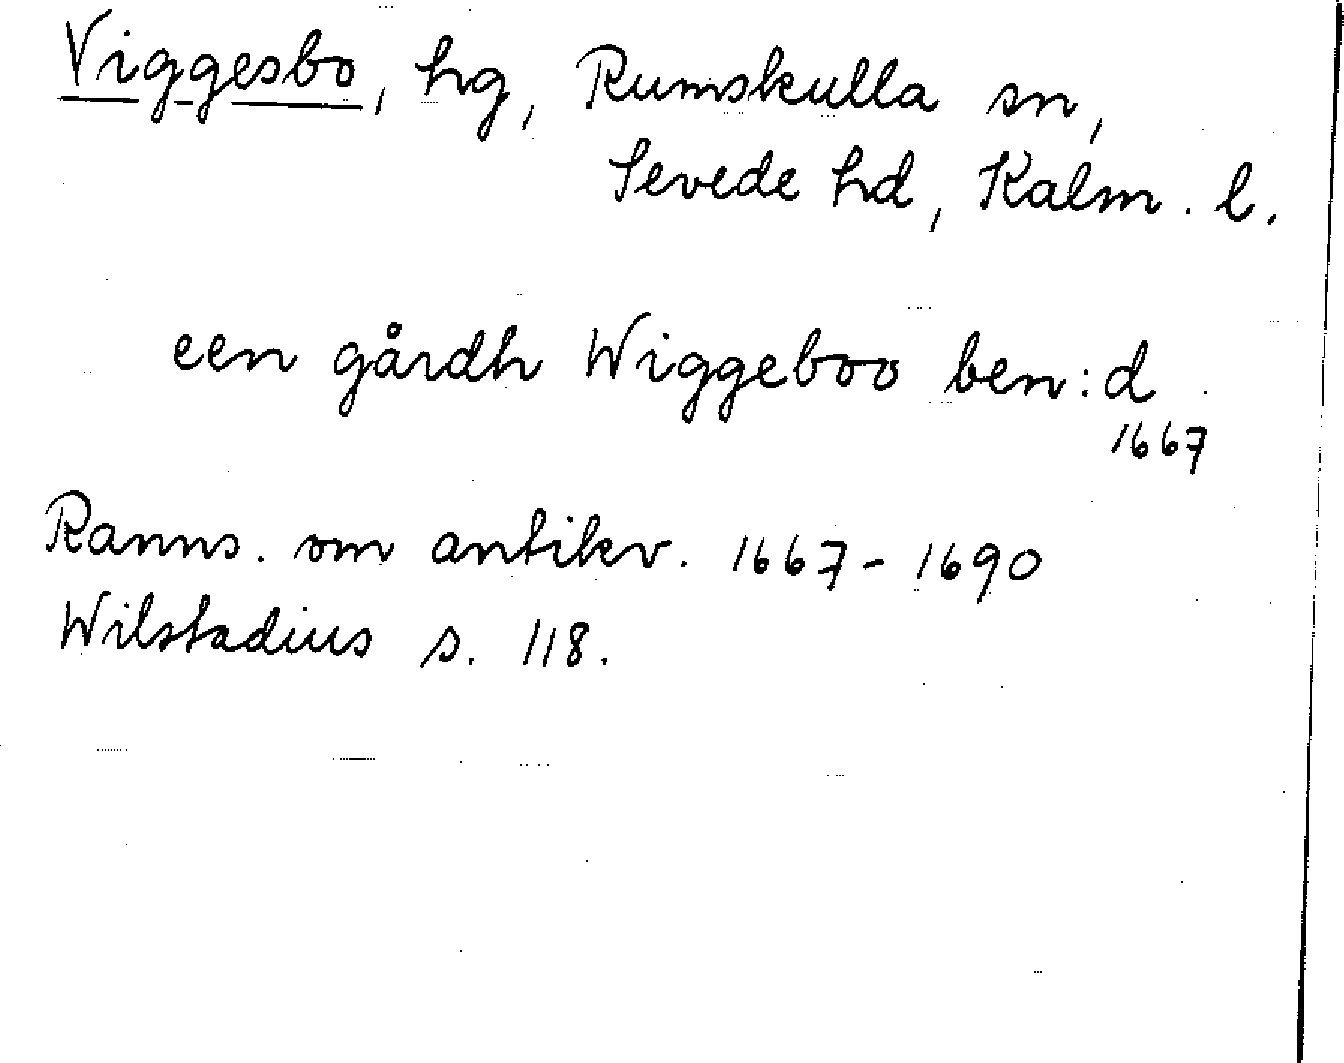 Viggesbo, hg, Rumskulla sn,
Sevede hd, Kalm. l.
een gårdh Wiggeboo ben:d
1667
Ranns. om antikv. 1667-1690
Wilstadius s. 118.